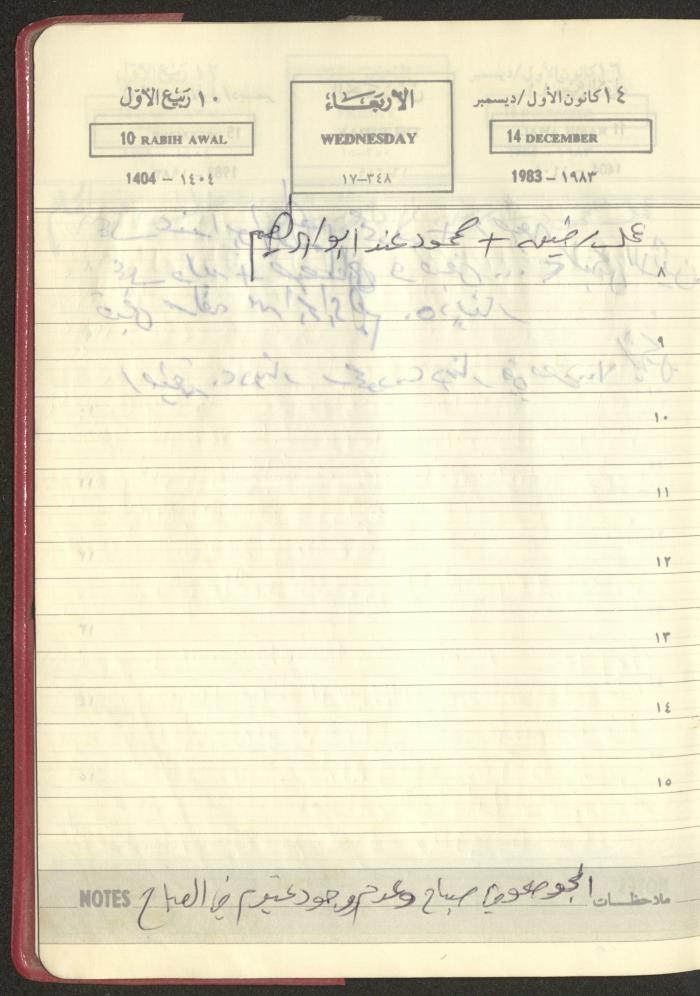 ١٤ كانون الأول/ديسمبر
الأربعاء
١٠ ربيع الأول
14 DECEMBER
WEDNESDAY
10 RABIH AWAL
1983 – ١٩٨٣
١٧–٣٤٨
1404 – ١٤٠٤
عمل + محمود عند ابو ابراهيم
٨
٩
١٠
١١
١٢
١٣
١٤
١٥
ملاحظات الجو صحو في صباح وعدم وجود غيوم في الصباح NOTES